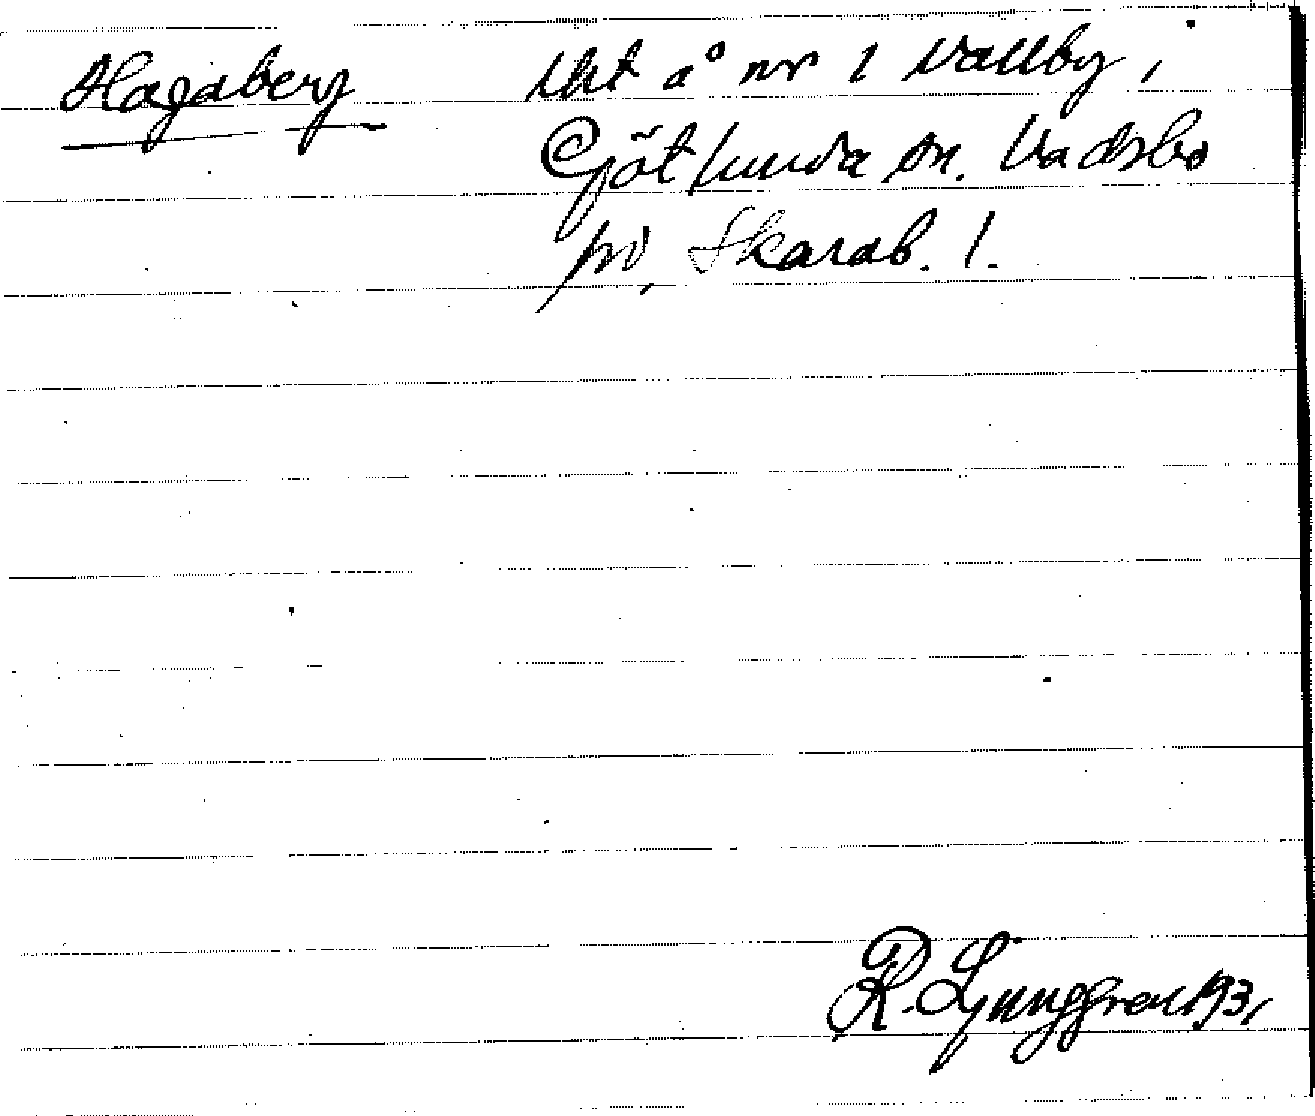 Hagaberg lht å nr 1 Vallby i
Götlunda sn. Vadsbo
hd, Skarab. l.
R. Ljunggren 1931